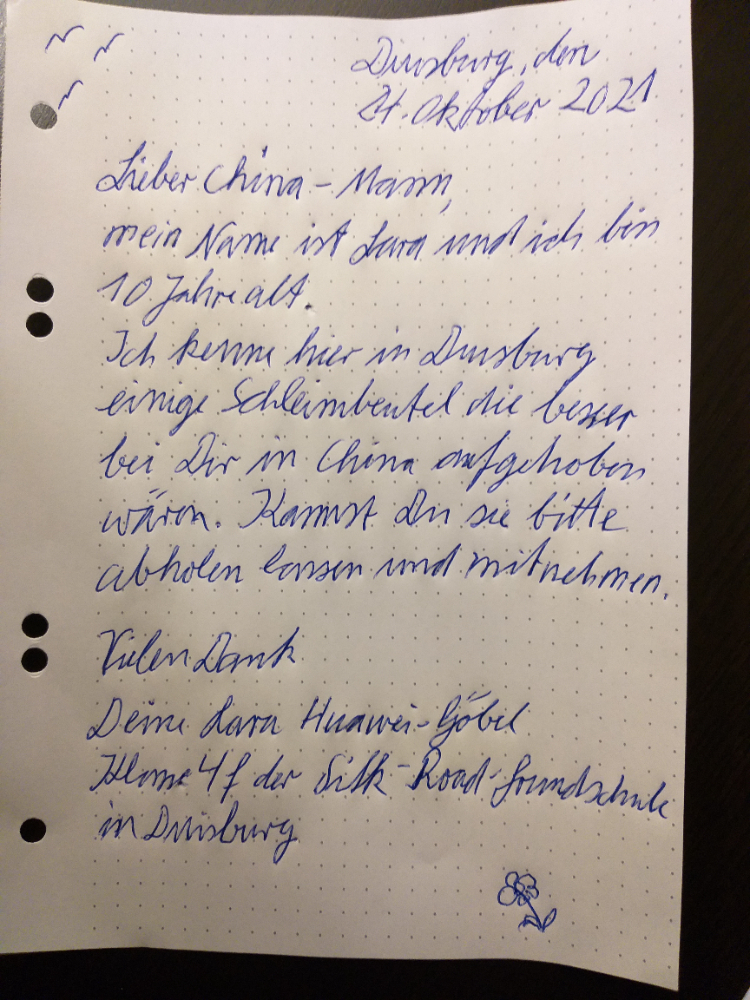 Duisburg, den
21. Oktober 2021
Lieber China-Mann,
mein Name ist Lara und ich bin
10 Jahre alt.
Ich kenne hier in Duisburg
einige Schleimbeutel die besser
bei Dir in China aufgehoben
wären. Kannst Du sie bitte
abholen lassen und mitnehmen.
Vielen Dank
Deine Lara Huawei-Göbel
Klasse 4f der Silk-Road-Grundschule
in Duisburg